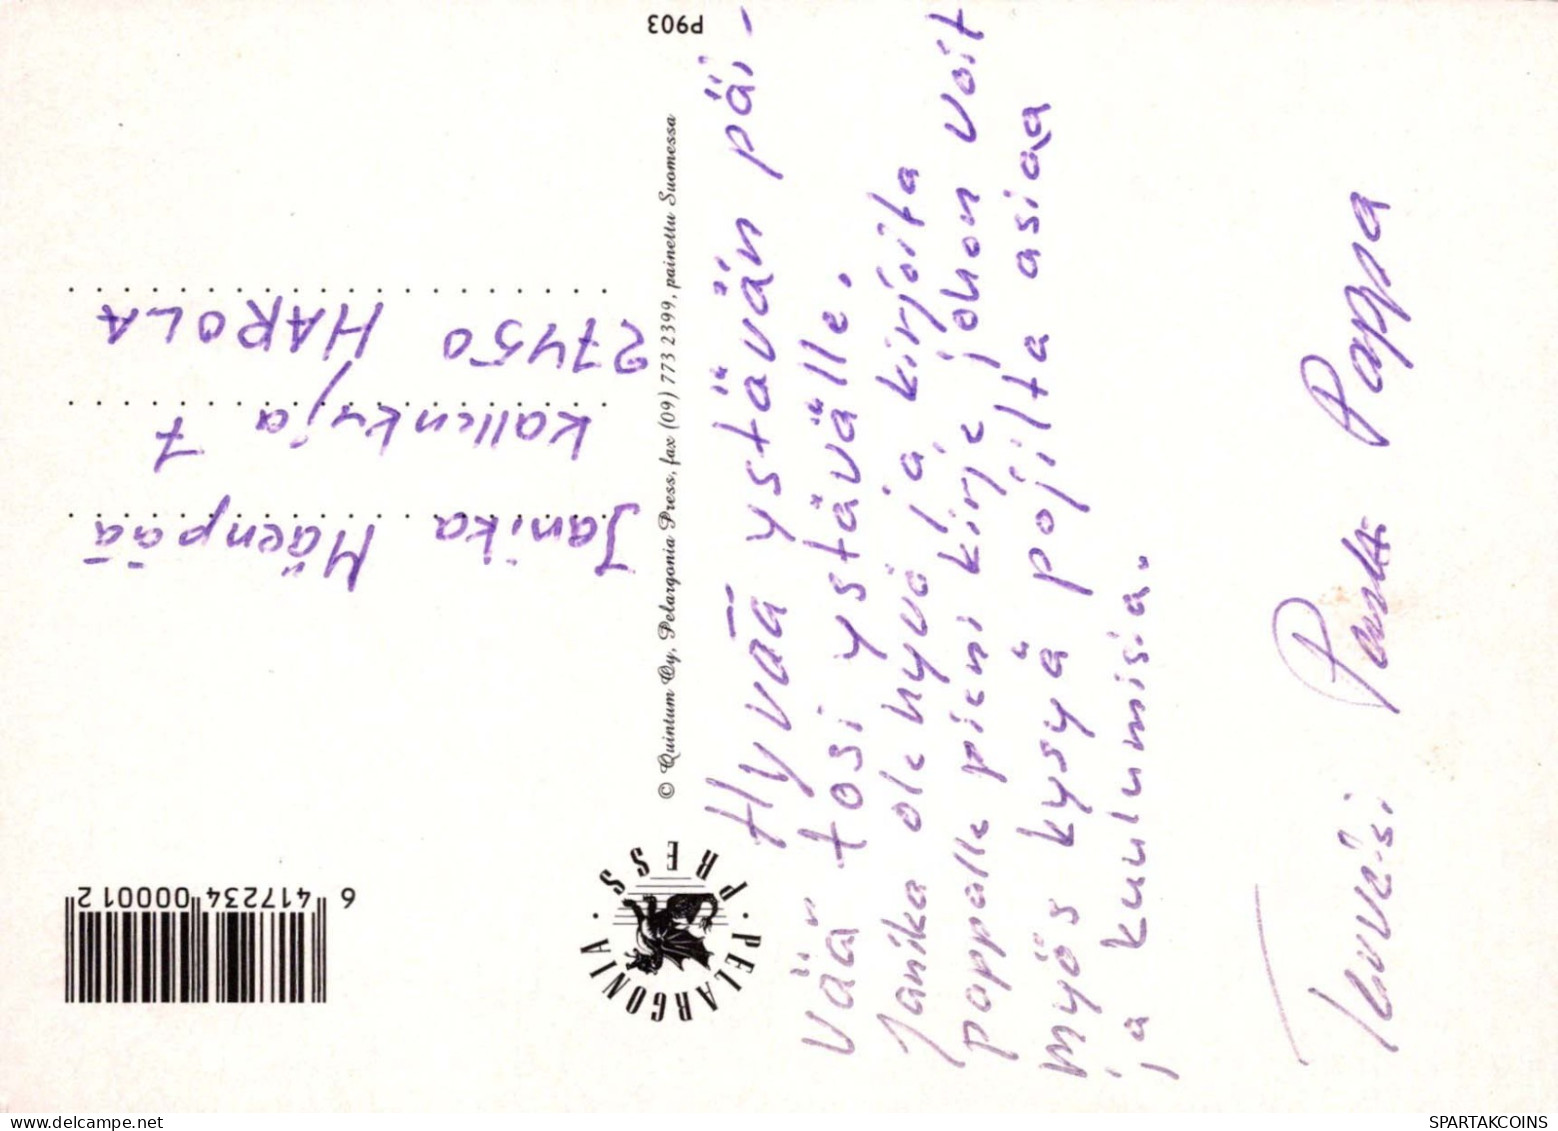 Hyvää ystävän päi-
vää tosi ystävälle.
Janika ole hyvä ja kirjoita
pappalle pieni kirje johon voit
myös kysyä pojilta asiaa
ja kuulumisia.
Terveisi Pappa
P903
© Quintum Oy, Pelargonia Press, fax (09) 773 2399, painettu Suomessa
PELARGONIA · PRESS ·
Janika Mäenpää
Kallenkuja 7
27450 HAROLA
6 417234 000012
www.delcampe.net
SPARTAKCOINS